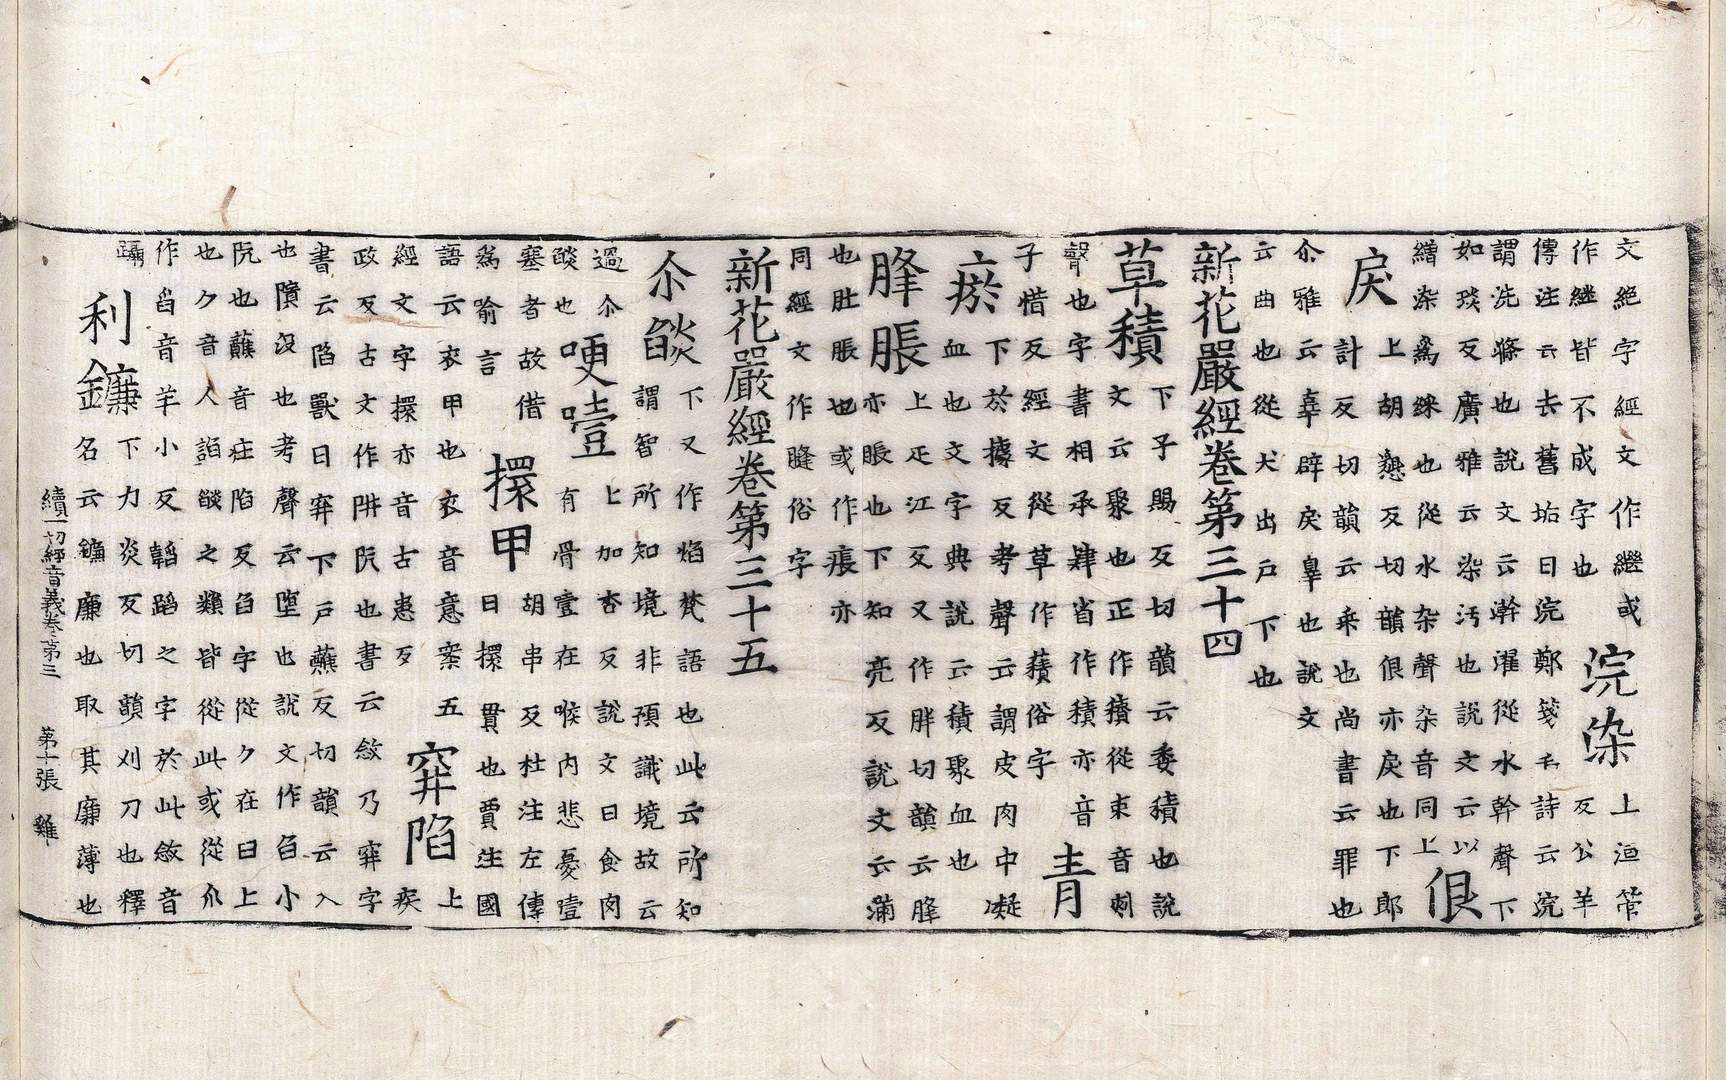 文絶字經文作繼或
作継皆不成字也
浣染
上洹管
反公羊
傳注云去舊垢曰浣鄭箋毛詩云浣
謂洗滌也說文云澣濯從水幹聲下
如琰反廣雅云染汚也說文云以
繒染爲綵也從水杂聲杂音同上
佷戾
上胡懇反切韻佷亦戾也下郎
計反切韻云乖也尚書云罪也
尒雅云辜辟戾辠也說文
云曲也從犬出戶下也
新花嚴經卷第三十四
草積
下子賜反切韻云委積也說
文云聚也正作𧂐從束音刺
聲也字書相承肆省作積亦音
子惜反經文從草作蕷俗字
青瘀
下於據反考聲云謂皮肉中凝
血也文字典說云積聚血也
膖脹
上疋江反又作胖切韻云膖
亦脹也下知亮反說文云滿
也肚脹也或作痮亦
同經文作膖俗字
新花嚴經卷第三十五
尒燄
下又作焰梵語也此云所知
謂智所知境非預識境故云
過尒
燄也
哽噎
上加杏反說文曰食肉
有骨壹在喉內悲憂壹
塞者故借
爲喻言
擐甲
胡串反杜注左傳
曰擐貫也賈注國
語云衣甲也衣音意案五
經文字擐亦音古患反
穽陷
上
疾
政反古文作阱阬也書云敜乃穽字
書云陷獸曰穽下戶蘸反切韻云入
也隤沒也考聲云墮也說文作臽小
阬也蘸音庄陷反臽字從⺈在臼上
也⺈音人謟燄之類皆從此或從爪
作舀音羊小反韜蹈之字於此敜音
躡
利鐮
下力炎反切韻刈刀也釋
名云鐮廉也取其廉薄也
續一切經音義卷第三 第十張 雞